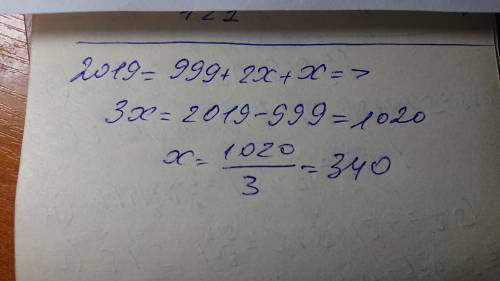 2019 = 999 + 2x + x =>
3x = 2019 - 999 = 1020
x = 1020/3 = 340